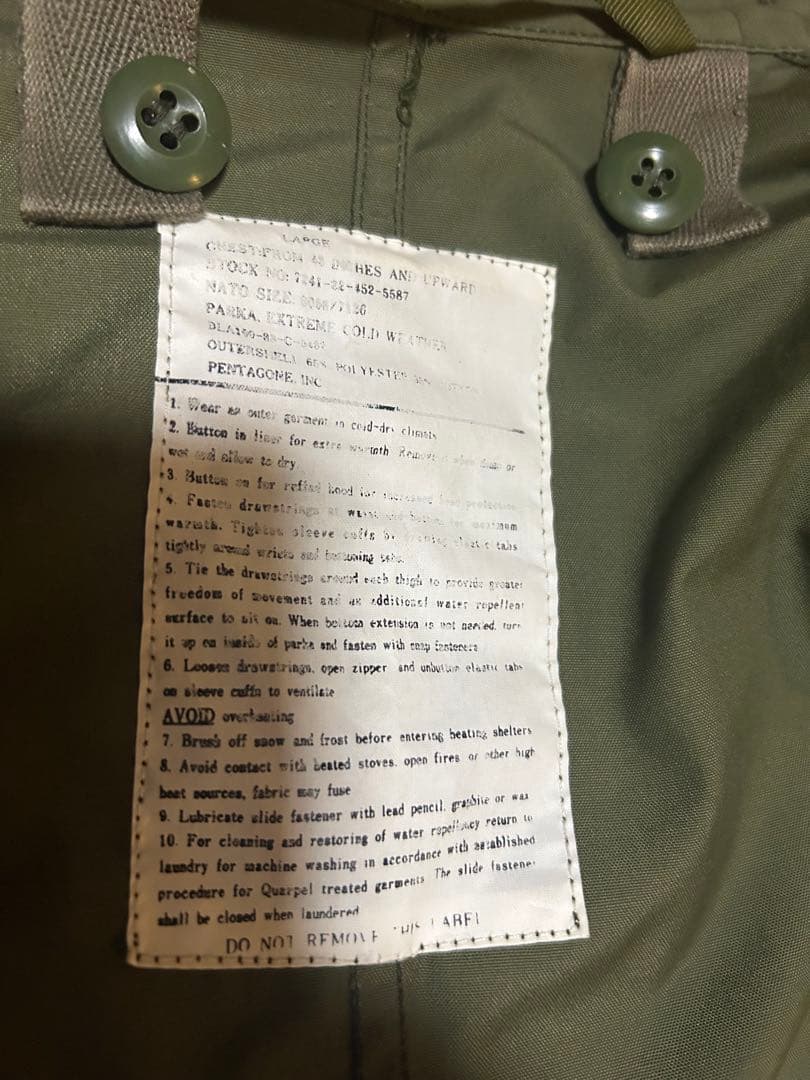 LARGE
CHEST: FROM 42 INCHES AND UPWARD
STOCK NO: 7241-22-452-5587
NATO SIZE:
PARKA, EXTREME COLD WEATHER
OUTERSHELL POLYESTER
PENTAGONE, INC
1. Wear as outer garment in cold-dry climate
2. Button in liner for extra warmth Remove when damp or
wet and allow to dry
3. Button on for hood for increased protection
4. Fasten drawstrings at waist and bottom for maximum
warmth. Tighten sleeve cuffs by elastic tabs
tightly around wrists and buttoning tabs.
5. Tie the drawstrings around each thigh to provide greater
freedom of movement and as additional water repellent
surface to sit on. When bottom extension is not needed, turn
it up on inside of parka and fasten with snap fasteners
6. Loosen drawstrings, open zipper and unbutton elastic tabs
on sleeve cuffs to ventilate
AVOID overheating
7. Brush off snow and frost before entering heating shelters
8. Avoid contact with heated stoves, open fires or other high
heat sources, fabric may fuse
9. Lubricate slide fastener with lead pencil, graphite or wax
10. For cleaning and restoring of water repellency return to
laundry for machine washing in accordance with established
procedure for Quarpel treated garments The slide fastener
shall be closed when laundered
DO NOT REMOVE THIS LABEL